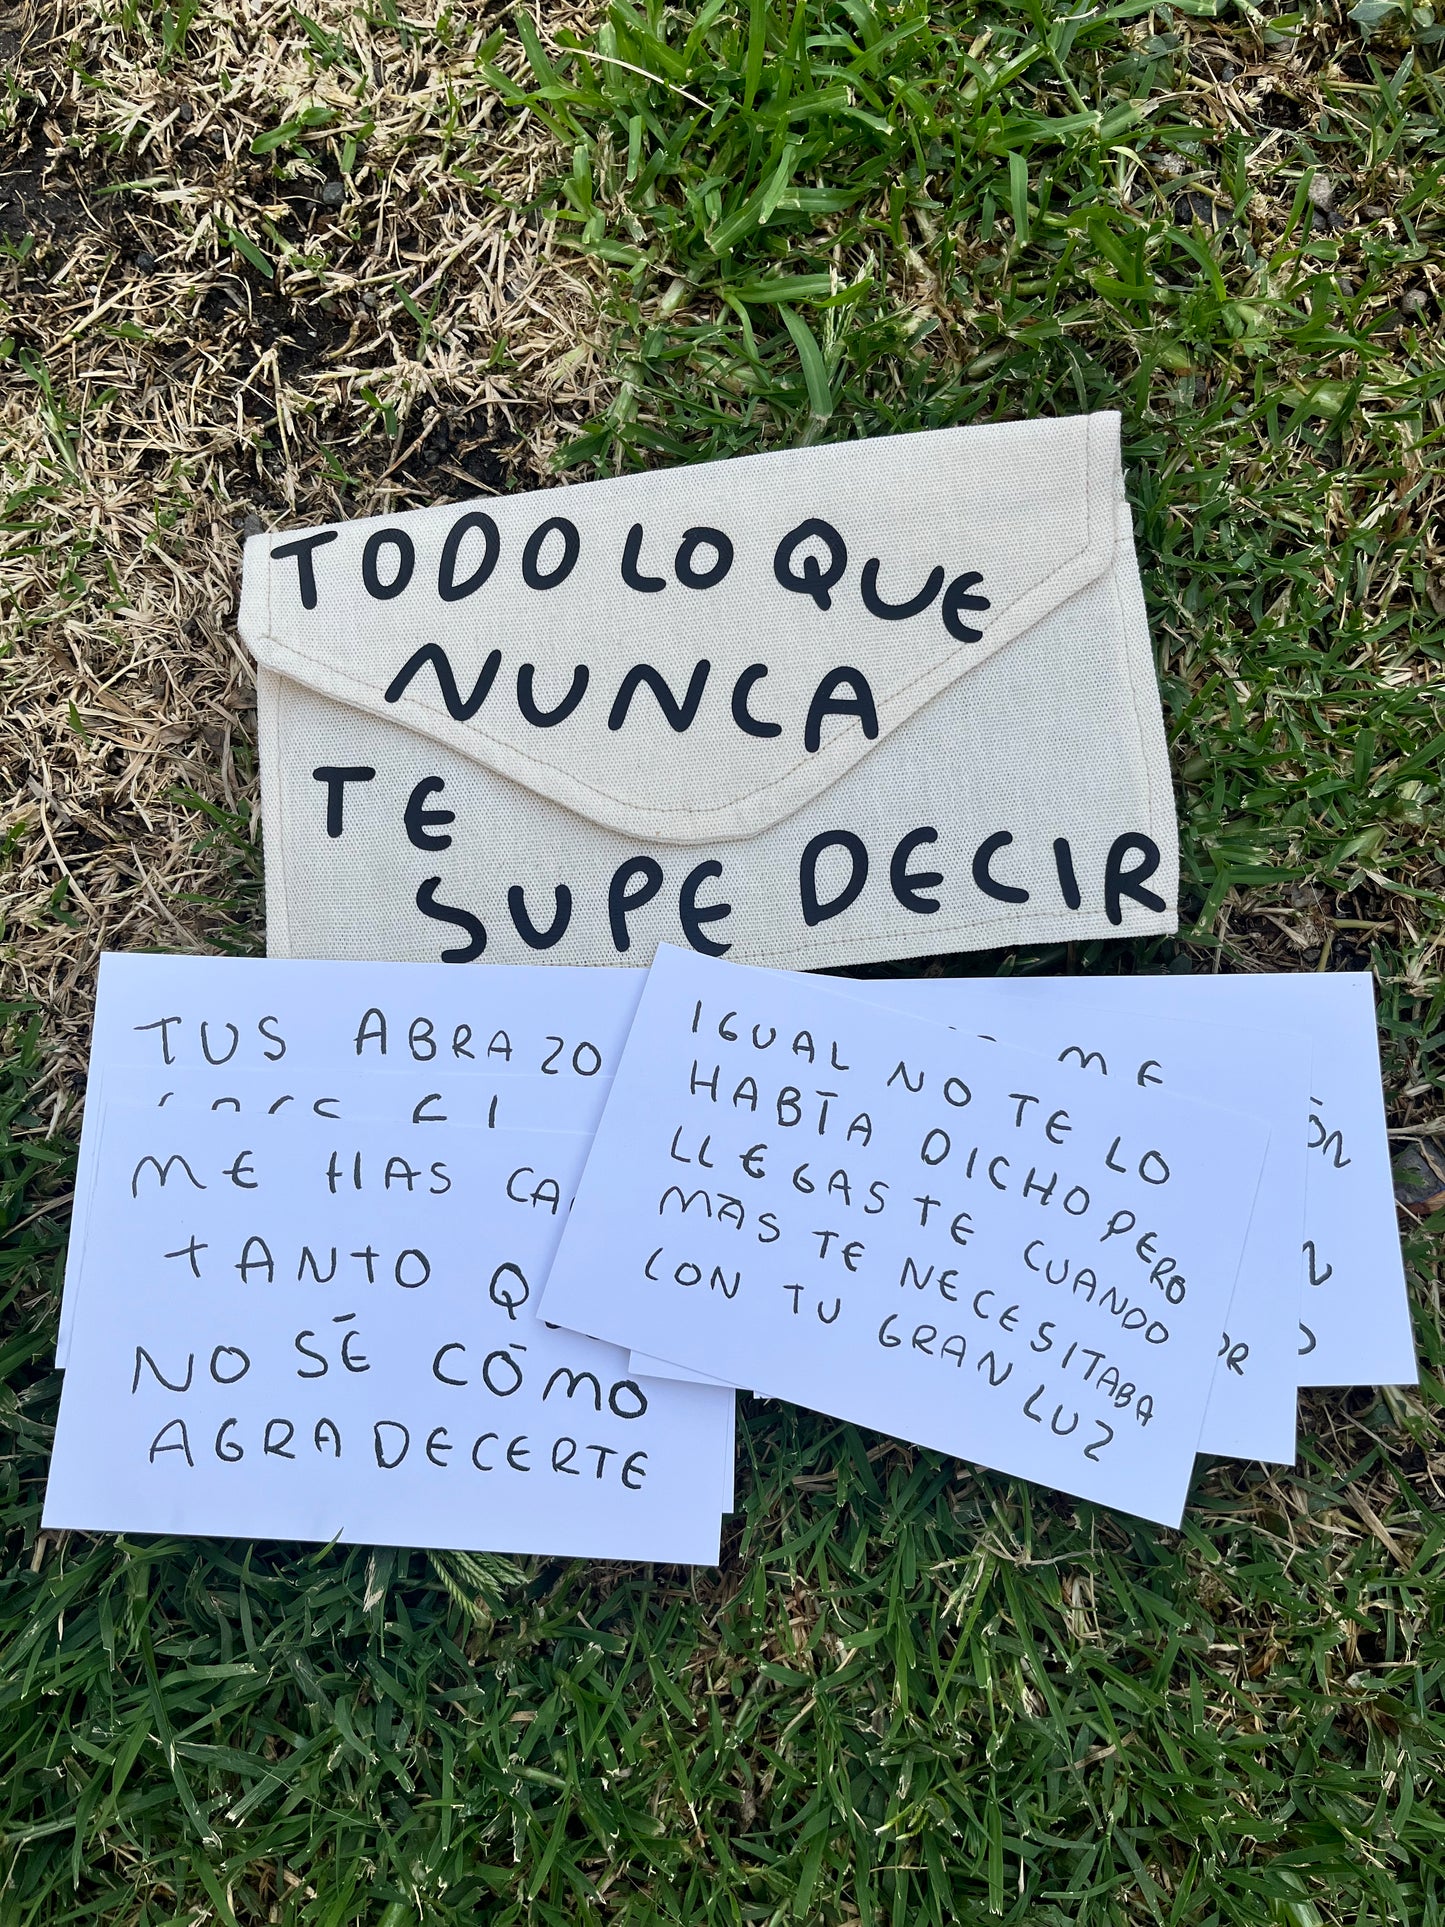 TODO LO QUE
NUNCA
TE
SUPE DECIR
TUS ABRAZO
ME HAS
TANTO
NO SÉ CÓMO
AGRADECERTE
IGUAL NO TE LO
HABÍA DICHO PERO
LLEGASTE CUANDO
MÁS TE NECESITABA
CON TU GRAN LUZ
ME